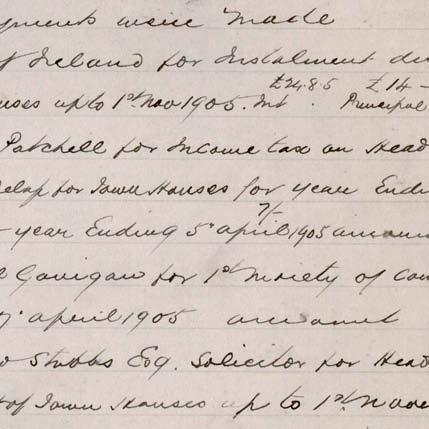 yments were made
of Ireland for Instalment du
£24.8.5 £14-
uses up to 1st Nov 1905. Int. Principal
Patchell for Income tax on Head
elap for Town Houses for year Endi
7/-
year Ending 5 april 1905 amoun
Gavigan for 1st Moiety of Cou
april 1905 amount
Stubbs Esq. Solicitor for Head
t of Town Houses up to 1st Nove